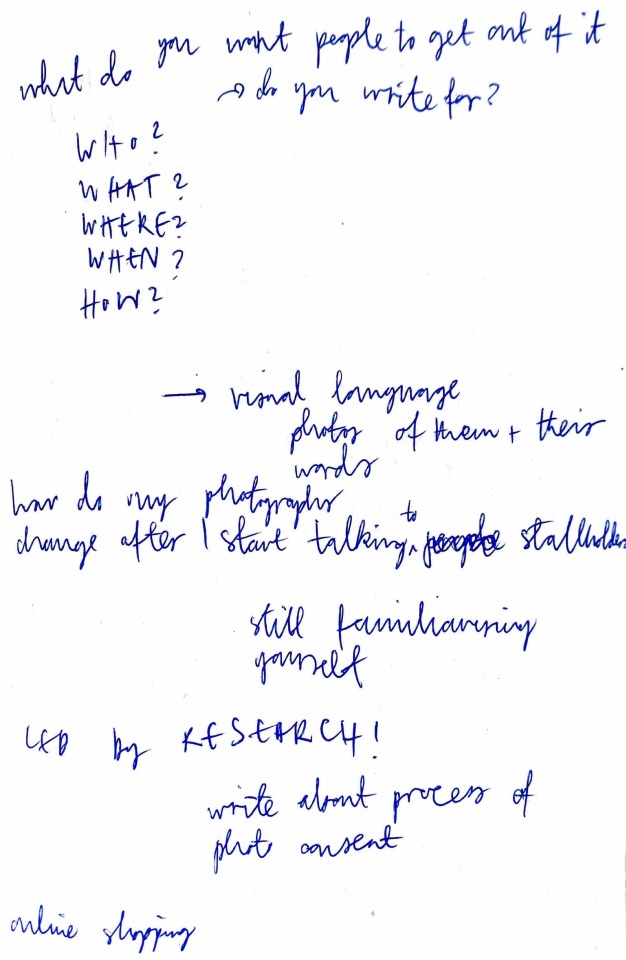 what do you want people to get out of it
→ do you write for?
WHO?
WHAT?
WHERE?
WHEN?
HOW?
→ visual language
photos of them + their
words
how do my photographs
change after I start talking to people stallholders
still familiarising
yourself
LED by RESEARCH!
write about process of
photo consent
online shopping